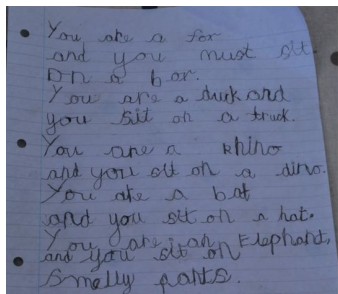 You are a fox
and you must sit.
On a box.
You are a duck and
you sit on a truck.
You are a rhino
and you sit on a dino.
You are a bat
and you sit on a hat.
You are an Elephant,
and you sit on
smelly pants.